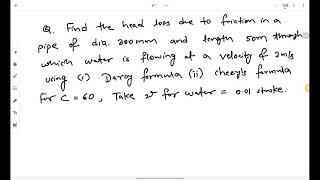 Q. Find the head loss due to friction in a
pipe of dia. 300mm and length 50m through
which water is flowing at a velocity of 3m/s
using (i) Darcy formula (ii) chezy's formula
For C = 60, Take ν for water = 0.01 stroke.
1/8